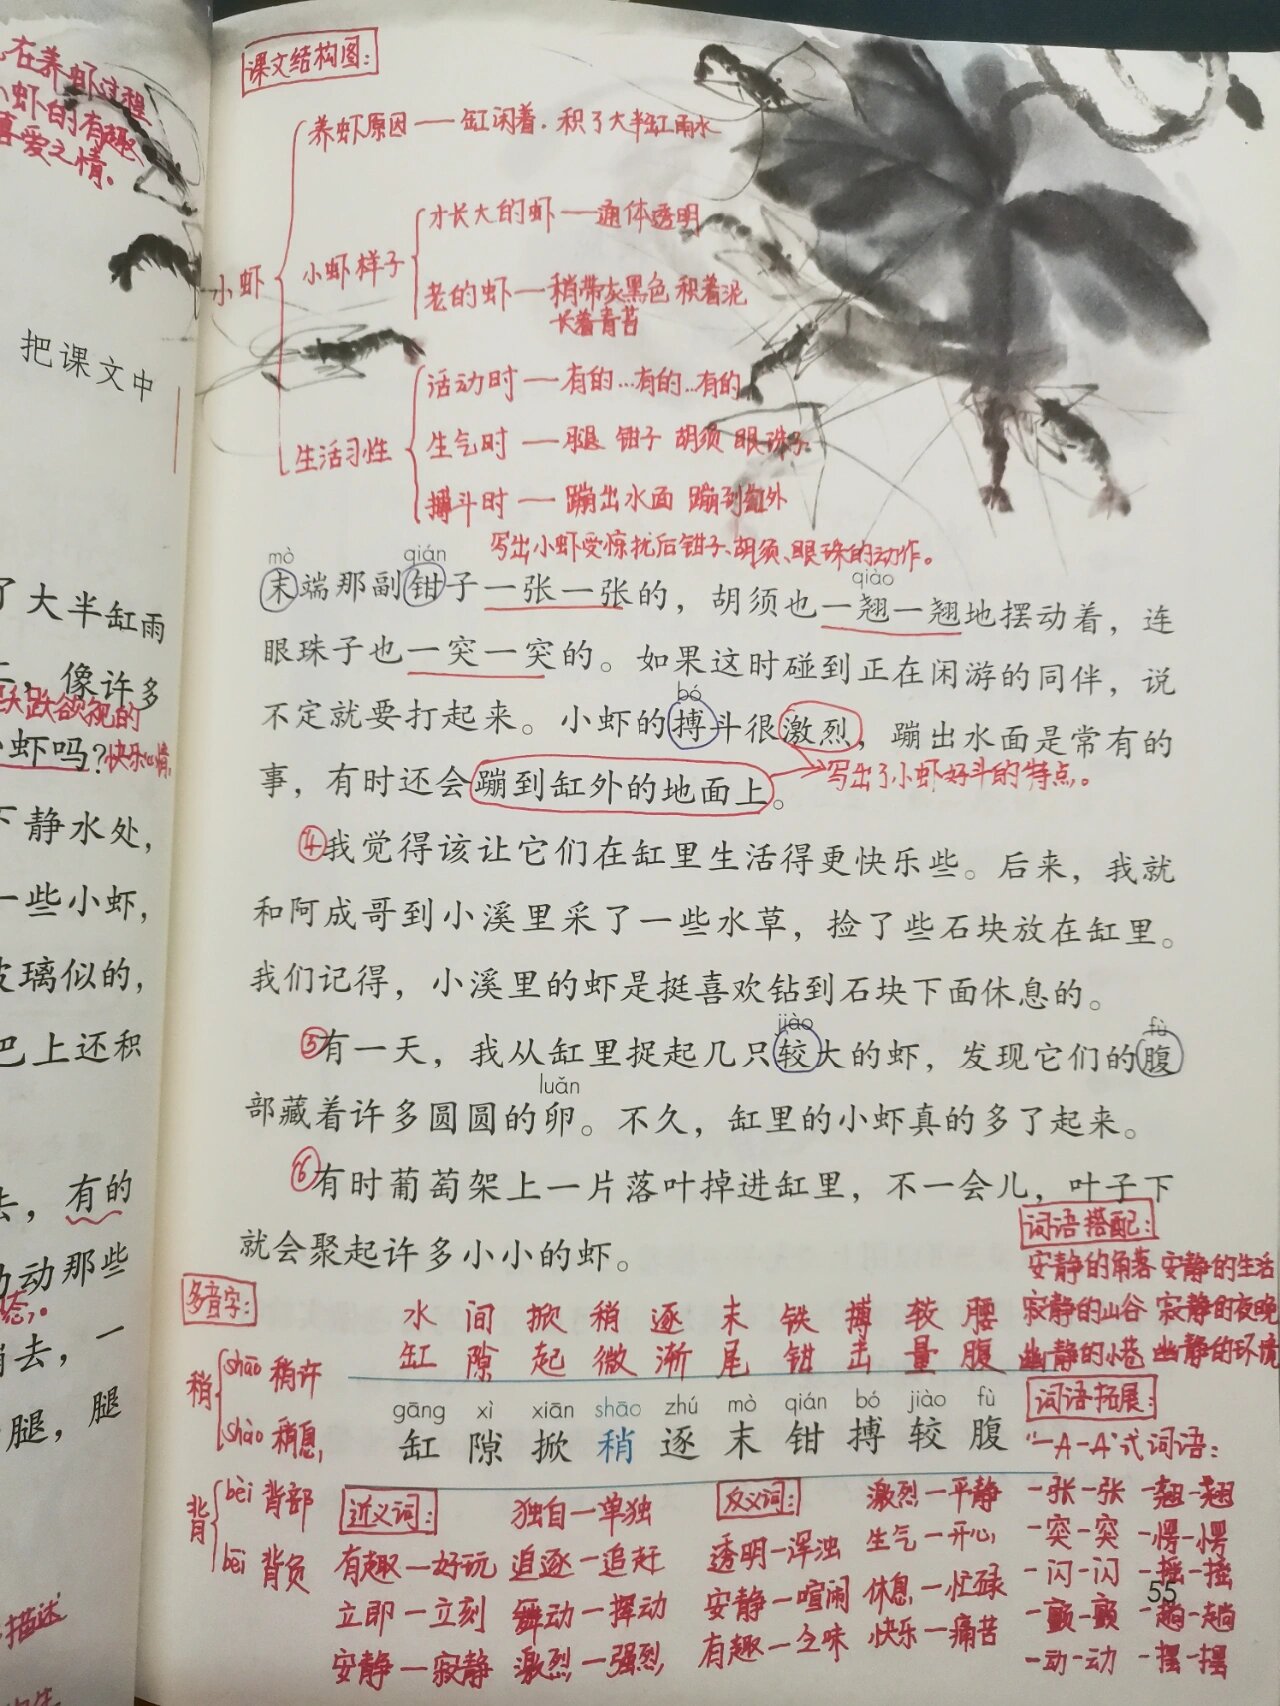 在养虾过程
小虾的有趣、
喜爱之情。
把课文中
了大半缸雨
，像许多
跃跃欲试的
小虾吗?快乐心情。
下静水处，
一些小虾，
玻璃似的，
巴上还积
去，有的
动那些
态。
消去，一
腿，腿
描述
课文结构图：
小虾
养虾原因——缸闲着．积了大半缸雨水
小虾样子
才长大的虾——通体透明
老的虾——稍带灰黑色 积着泥
长着青苔
生活习性
活动时——有的…有的…有的
生气时——腿 钳子 胡须 眼珠子
搏斗时——蹦出水面 蹦到缸外
写出小虾受惊扰后钳子、胡须、眼珠的动作。
mò qián qiào
末端那副钳子一张一张的，胡须也一翘一翘地摆动着，连
眼珠子也一突一突的。如果这时碰到正在闲游的同伴，说
bó
不定就要打起来。小虾的搏斗很激烈，蹦出水面是常有的
事，有时还会蹦到缸外的地面上。
写出了小虾好斗的特点。
④我觉得该让它们在缸里生活得更快乐些。后来，我就
和阿成哥到小溪里采了一些水草，捡了些石块放在缸里。
我们记得，小溪里的虾是挺喜欢钻到石块下面休息的。
jiào fù
⑤有一天，我从缸里捉起几只较大的虾，发现它们的腹
luǎn
部藏着许多圆圆的卵。不久，缸里的小虾真的多了起来。
⑥有时葡萄架上一片落叶掉进缸里，不一会儿，叶子下
就会聚起许多小小的虾。
词语搭配：
安静的角落 安静的生活
寂静的山谷 寂静的夜晚
幽静的小巷 幽静的环境
多音字：
稍 shāo 稍许
shào 稍息
背 bèi 背部
bēi 背负
水 间 掀 稍 逐 末 铁 搏 较 腰
缸 隙 起 微 渐 尾 钳 击 量 腹
gāng xì xiān shāo zhú mò qián bó jiào fù
缸 隙 掀 稍 逐 末 钳 搏 较 腹
近义词： 独自—单独
有趣—好玩 追逐—追赶
立即—立刻 舞动—挥动
安静—寂静 激烈—强烈
反义词： 激烈—平静
透明—浑浊 生气—开心
安静—喧闹 休息—忙碌
有趣—乏味 快乐—痛苦
词语拓展：
“一A一A”式词语：
一张一张 一翘一翘
一突一突 一愣一愣
一闪一闪 一摇一摇
一颤一颤 一趟一趟
一动一动 一摆一摆
55